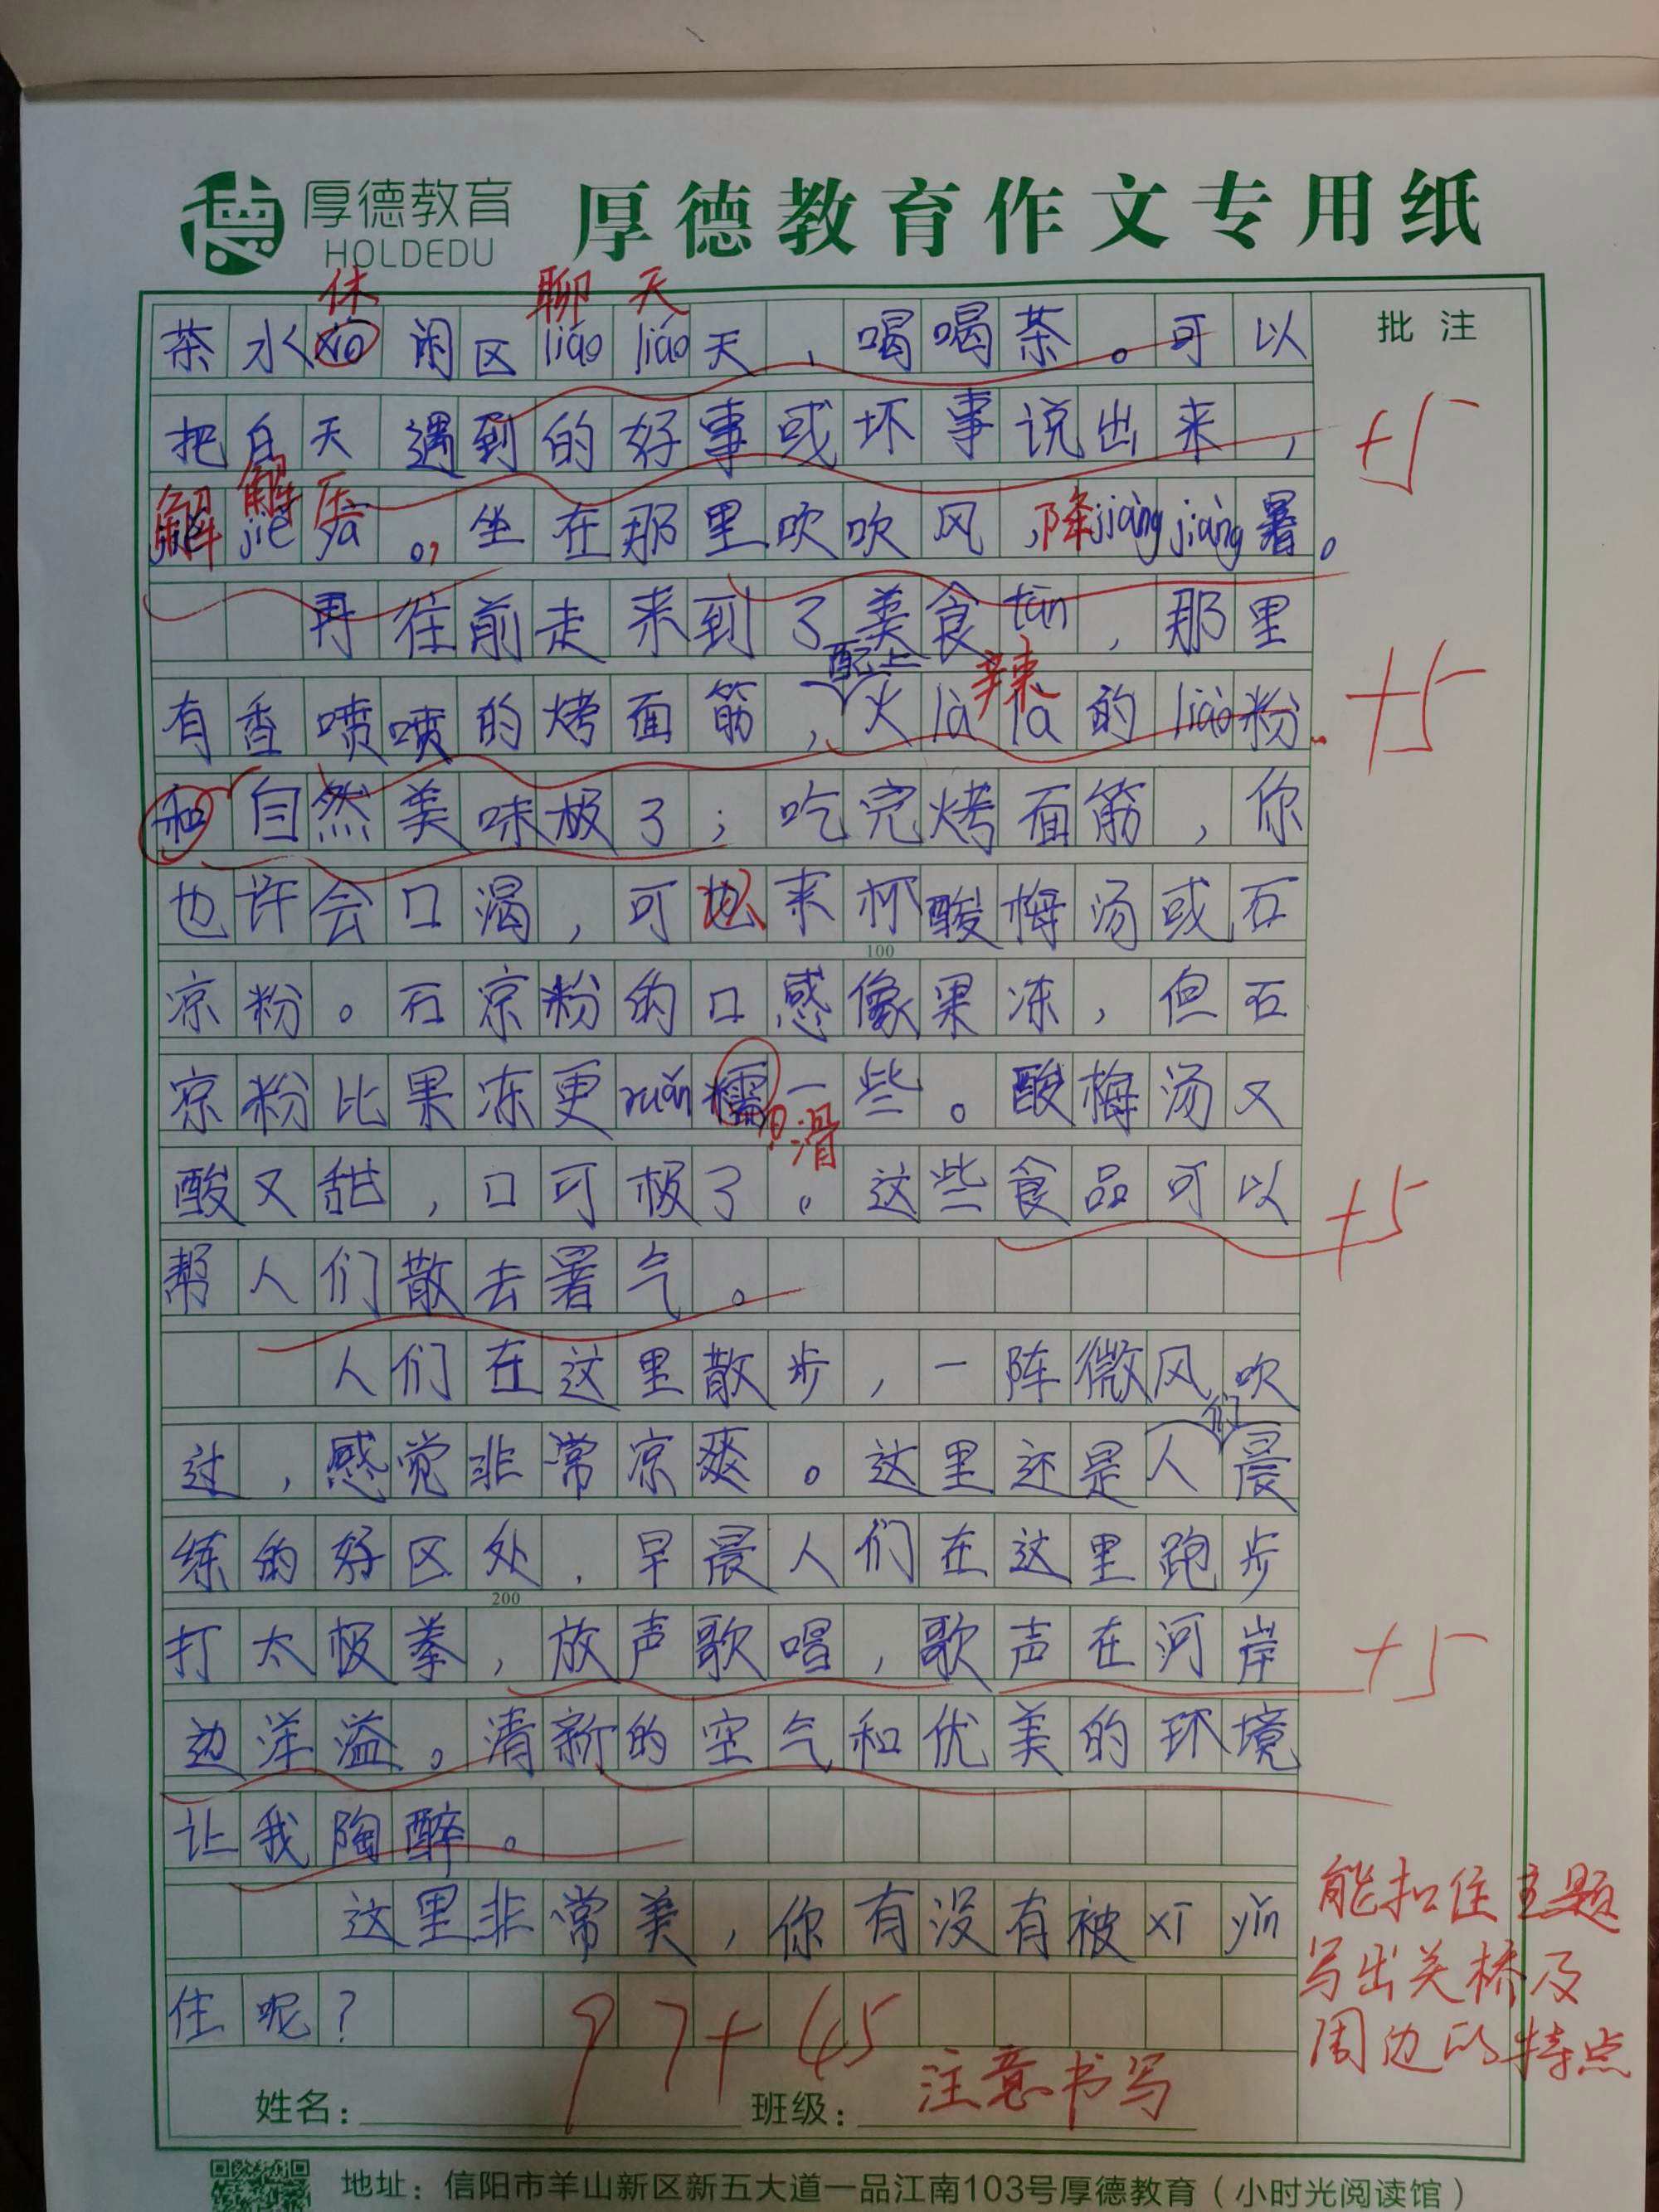 厚德教育
HOLDEDU
厚德教育作文专用纸
休 聊 天
茶水xiū闲区liáo liáo天，喝喝茶。可以
批注
把白天遇到的好事或坏事说出来，
+5
解 解 压
jiě jiě yā。，坐在那里吹吹风，降jiàng jiàng暑。
再往前走来到了美食tān，那里
配上 辣
有香喷喷的烤面筋，火là là的liào粉.
+5
和自然美味极了；吃完烤面筋，你
也许会口渴，可以来杯酸梅汤或石
100
凉粉。石凉粉的口感像果冻，但石
凉粉比果冻更ruǎn糯一些。酸梅汤又
滑
酸又甜，口可极了。这些食品可以
+5
帮人们散去暑气。
人们在这里散步，一阵微风吹
们
过，感觉非常凉爽。这里还是人晨
练的好区处，早晨人们在这里跑步
200
打太极拳，放声歌唱，歌声在河岸
+5
边洋溢。清新的空气和优美的环境
让我陶醉。
这里非常美，你有没有被xī yǐn
住呢？
能扣住主题
写出关桥及
周边的特点
97+45
注意书写
姓名：
班级：
地址：信阳市羊山新区新五大道一品江南103号厚德教育（小时光阅读馆）